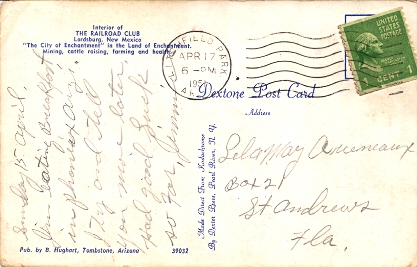 Interior of
THE RAILROAD CLUB
Lordsburg, New Mexico
"The City of Enchantment" in the Land of Enchantment.
Mining, cattle raising, farming and health.
Sunday 15 april,
Im eating breakfast
in phoenix ariz
Try and tell
you more later
Had good luck
so far, Jimmie
Pub. by B. Hughart, Tombstone, Arizona
39032
Made Direct From Kodachrome
By Dexter Press, Pearl River, N. Y.
FIELD PARK
APR 17
6 - PM
195
UNITED STATES
POSTAGE
1 CENT 1
Dextone Post Card
Address
Lela May Arceneaux
Box 21
St Andrews
Fla.